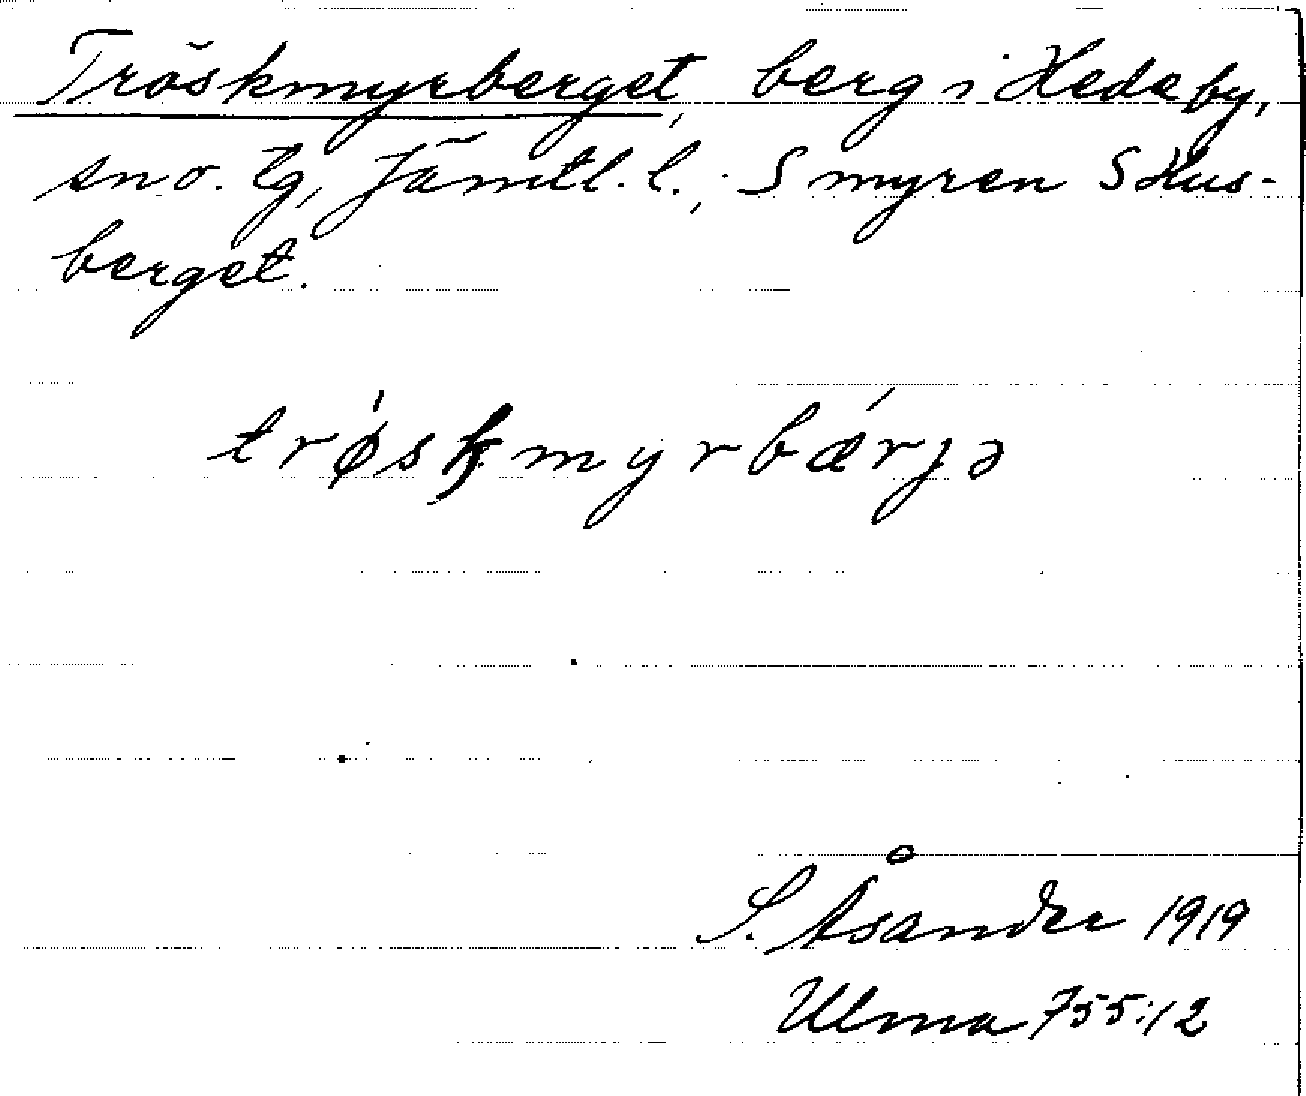 Tröskmyrberget, berg i Hedeby,
sn o. lg, Jämtl. l., S myren S Hus-
berget.
trøskmyrbærjə
S. Åsander 1919
Ulma 755:12